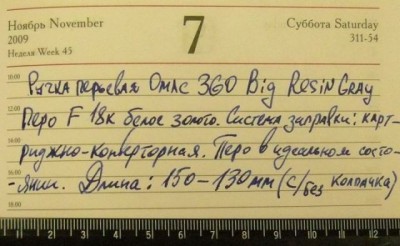 Ноябрь November
2009
Неделя Week 45
7
Суббота Saturday
311-54
10.00
Ручка перьевая OMAC 360 Big Resin Gray
12.00
Перо F 18к белое золото. Система заправки: карт-
риджно-конверторная. Перо в идеальном состо-
-янии. Длина: 150-130мм (с/без колпачка)
18.00
1 2 3 4 5 6 7 8 9 10 11 12